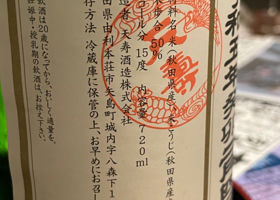 原料名 米（秋田県産）、米こうじ（秋田県産
歩合 50％
ル分 15度 内容量720ml
造者 天寿酒造株式会社
田県由利本荘市矢島町城内字八森下1
存方法 冷蔵庫に保管の上、お早めにお召し
飲酒は20歳になってから。おいしく適量を。
妊娠中・授乳期の飲酒は、お控え下さい。
寿